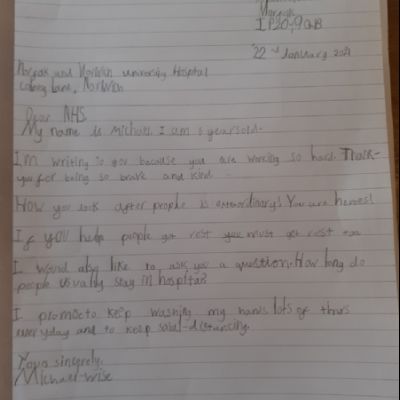 Norfolk
IP20 9QB
22nd January 2021
Norfolk and Norwich university Hospital
colney Lane, Norwich
Dear NHS
My name is Michael. I am 8 years old.
I'm writing to you because you are working so hard. Thank-
you for being so brave and kind.
How you look after people is extraordinary! You are heroes!
If you help people get rest you must get rest too
I would also like to ask you a question. How long do
people usually stay in hospital?
I promise to keep washing my hands lots of times
everyday and to keep social-distancing.
Yours sincerely,
Michael-wise